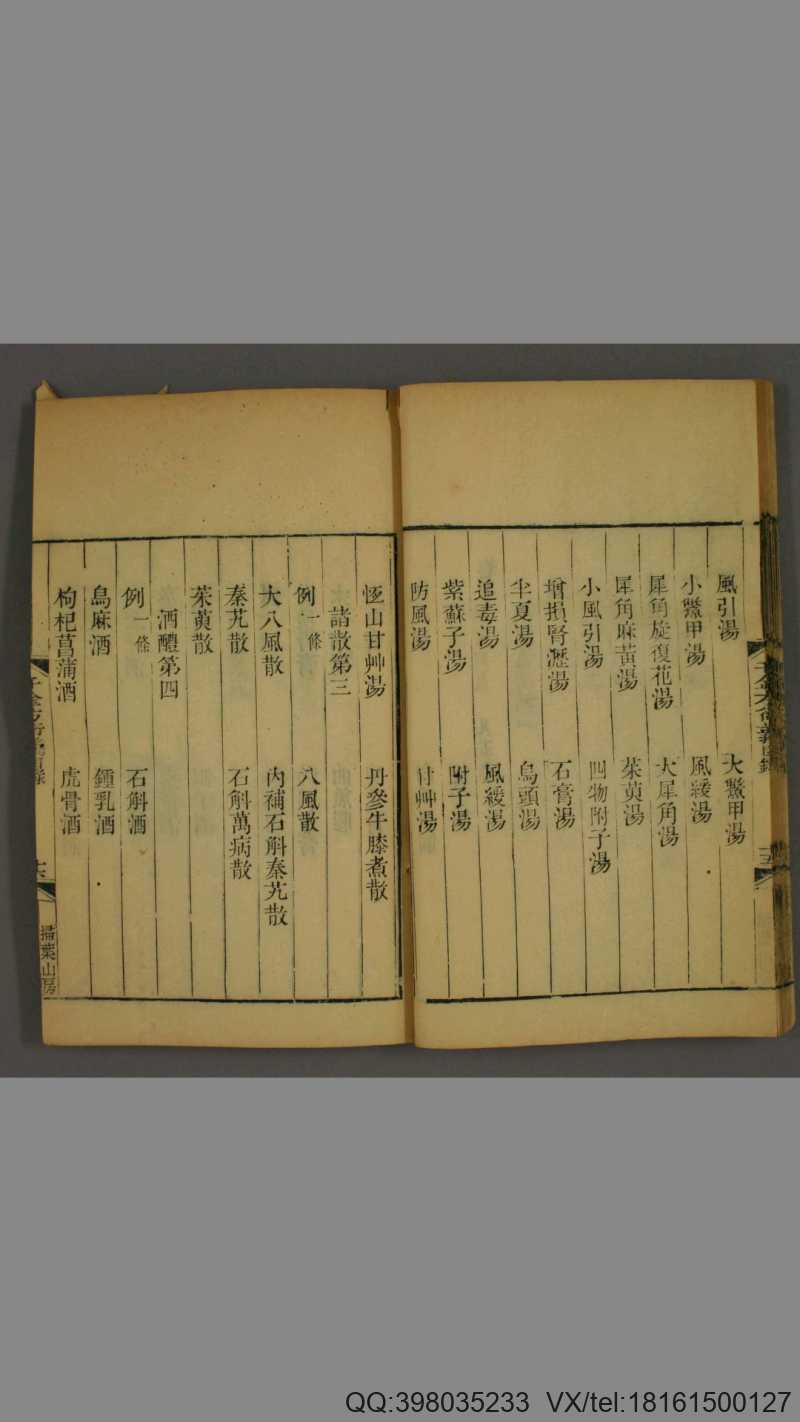 風引湯 大鱉甲湯
小鱉甲湯 風緩湯
犀角旋復花湯 大犀角湯
犀角麻黃湯 茱萸湯
小風引湯 四物附子湯
增損腎瀝湯 石膏湯
半夏湯 烏頭湯
追毒湯 風緩湯
紫蘇子湯 附子湯
防風湯 甘艸湯
恆山甘艸湯 丹參牛膝煮散
諸散第三
例一條 八風散
大八風散 內補石斛秦艽散
秦艽散 石斛萬病散
茱萸散
酒醴第四
例一條 石斛酒
烏麻酒 鍾乳酒
枸杞菖蒲酒 虎骨酒
十六
掃葉山房
QQ:398035233 VX/tel:18161500127